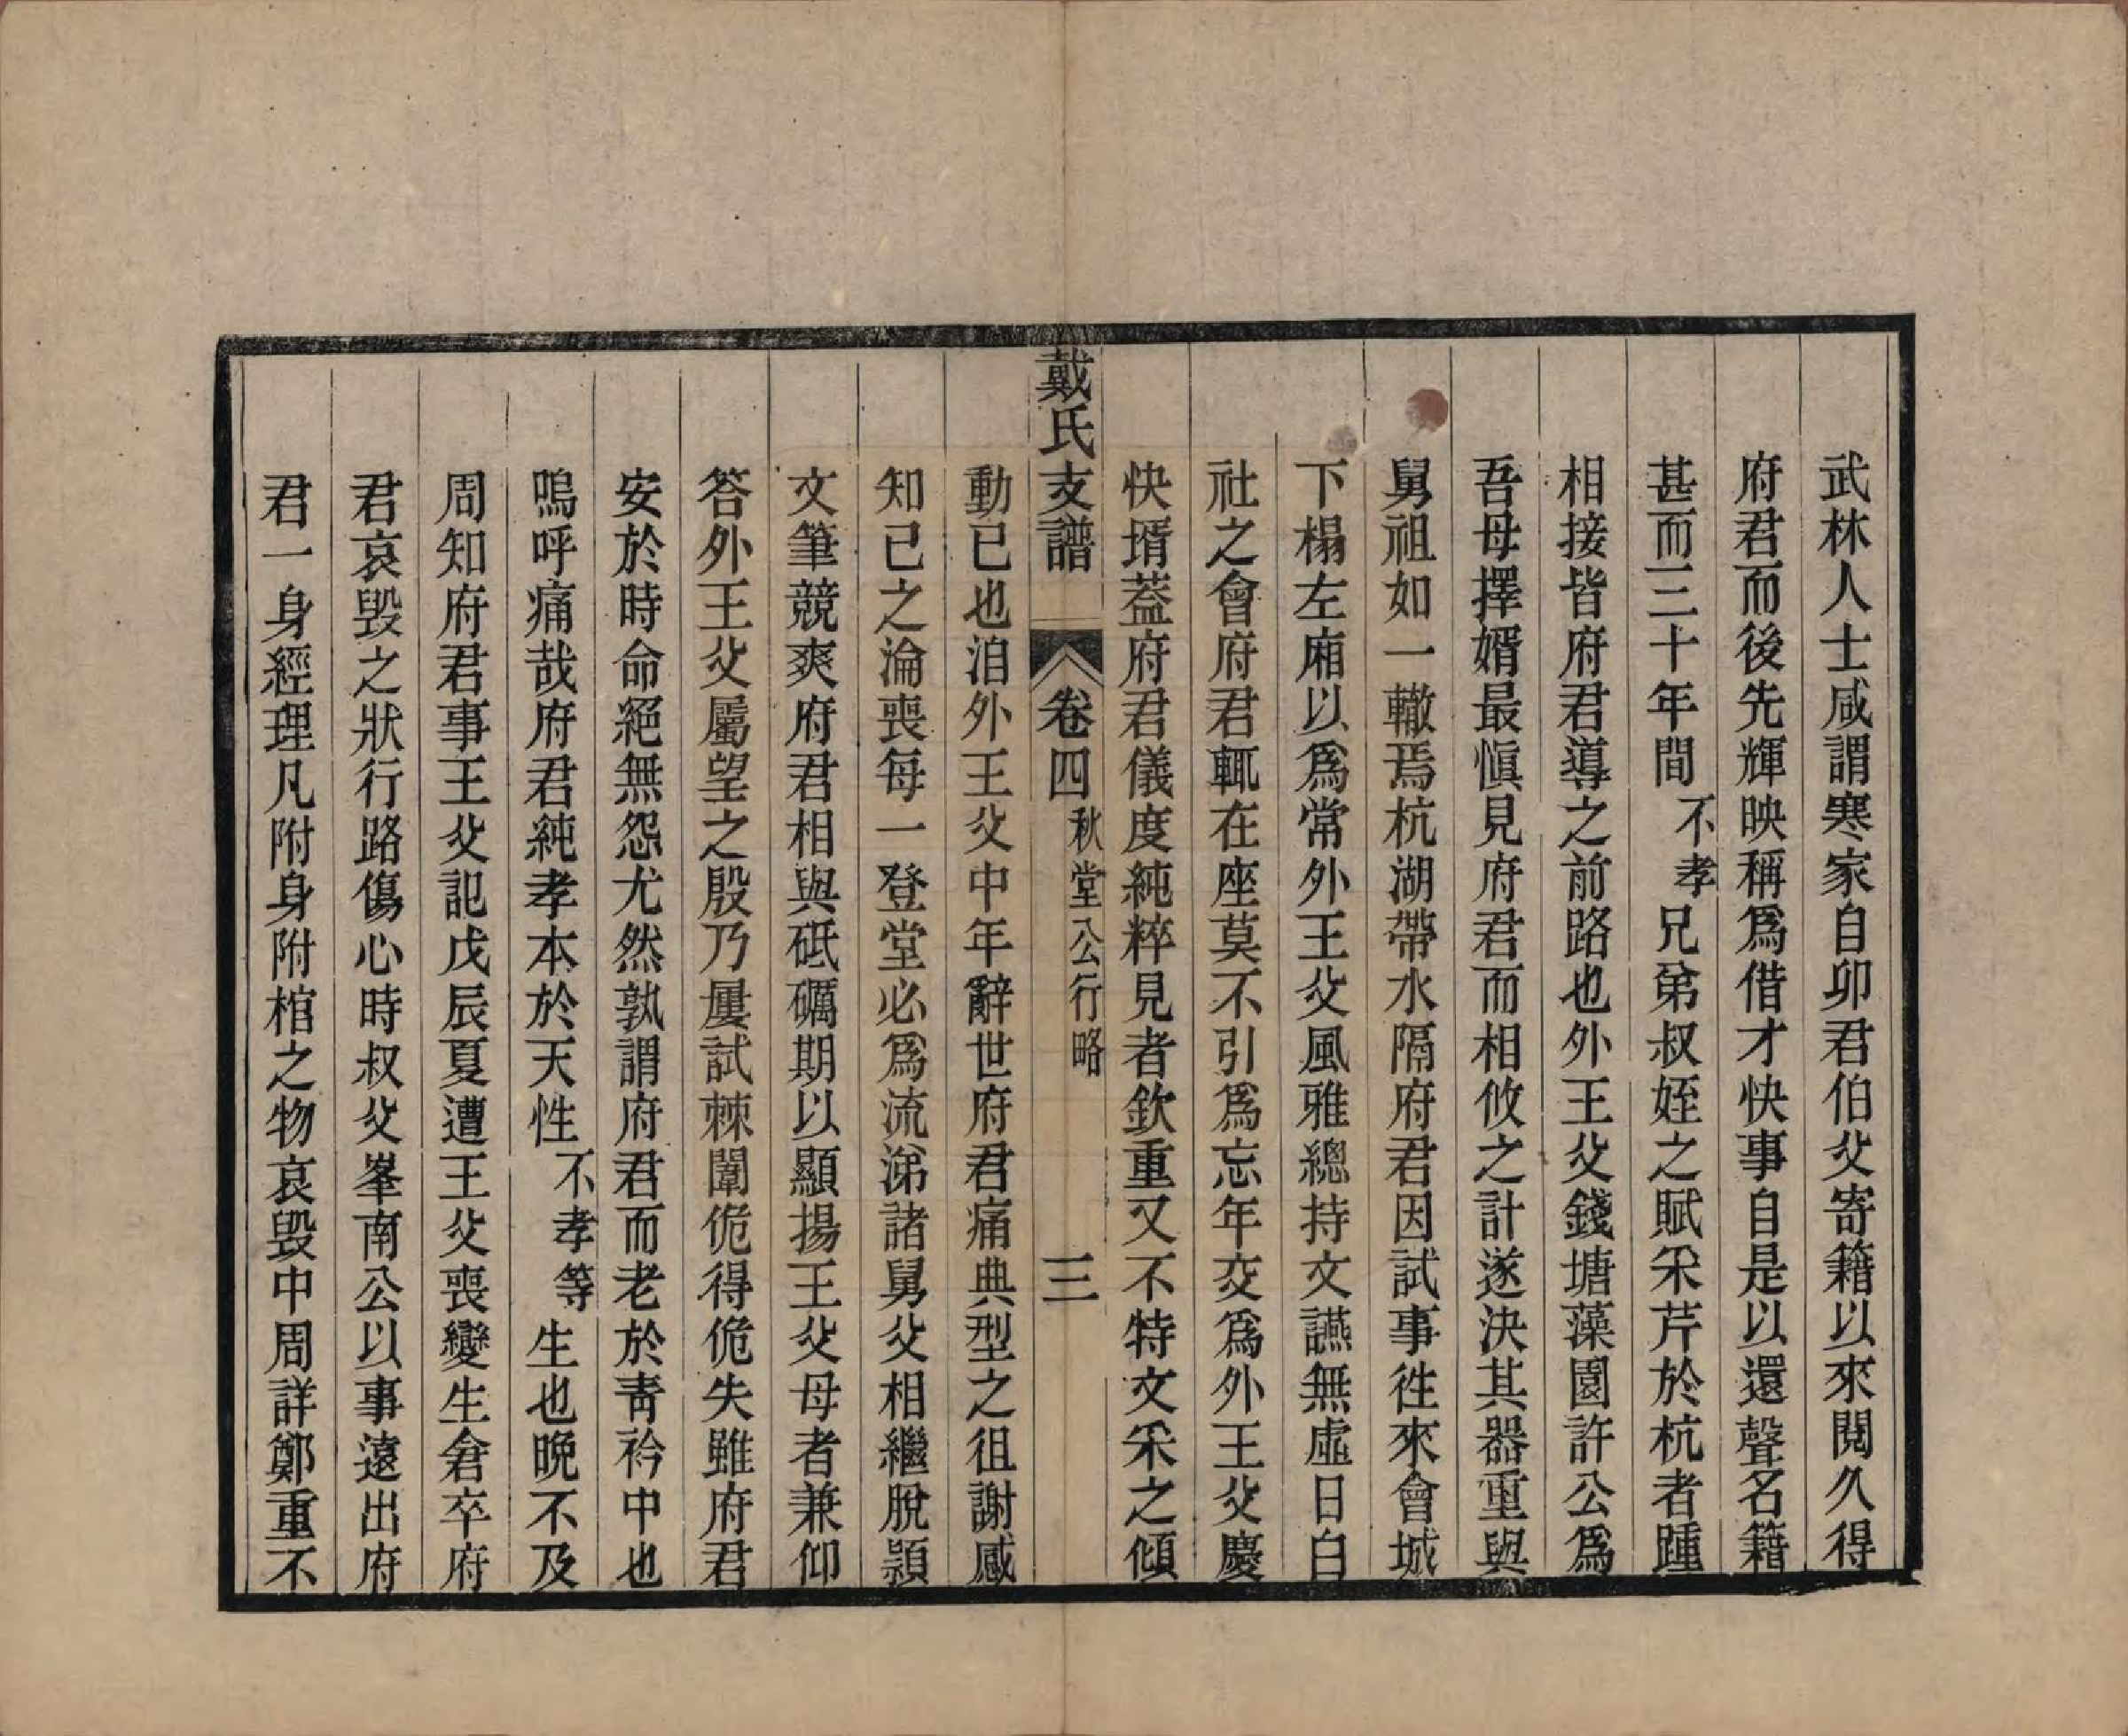 武林人士咸謂寒家自卯君伯父寄籍以來閱久得
府君而後先輝映稱爲借才快事自是以還聲名籍
甚而三十年間不孝兄弟叔姪之賦采芹於杭者踵
相接皆府君導之前路也外王父錢塘藻園許公爲
吾母擇婿最愼見府君而相攸之計遂決其器重與
舅祖如一轍焉杭湖帶水隔府君因試事往來會城
下榻左廂以爲常外王父風雅總持文讌無虛日白
社之會府君輒在座莫不引爲忘年交爲外王父慶
快壻葢府君儀度純粹見者欽重又不特文采之傾
戴氏支譜 卷四 秋堂公行略 三
動已也洎外王父中年辭世府君痛典型之徂謝感
知己之淪喪每一登堂必爲流涕諸舅父相繼脫潁
文筆競爽府君相與砥礪期以顯揚王父母者兼仰
答外王父屬望之殷乃屢試棘闈佹得佹失雖府君
安於時命絕無怨尤然孰謂府君而老於靑衿中也
嗚呼痛哉府君純孝本於天性不孝等生也晚不及
周知府君事王父記戊辰夏遭王父喪變生倉卒府
君哀毀之狀行路傷心時叔父峯南公以事遠出府
君一身經理凡附身附棺之物哀毀中周詳鄭重不